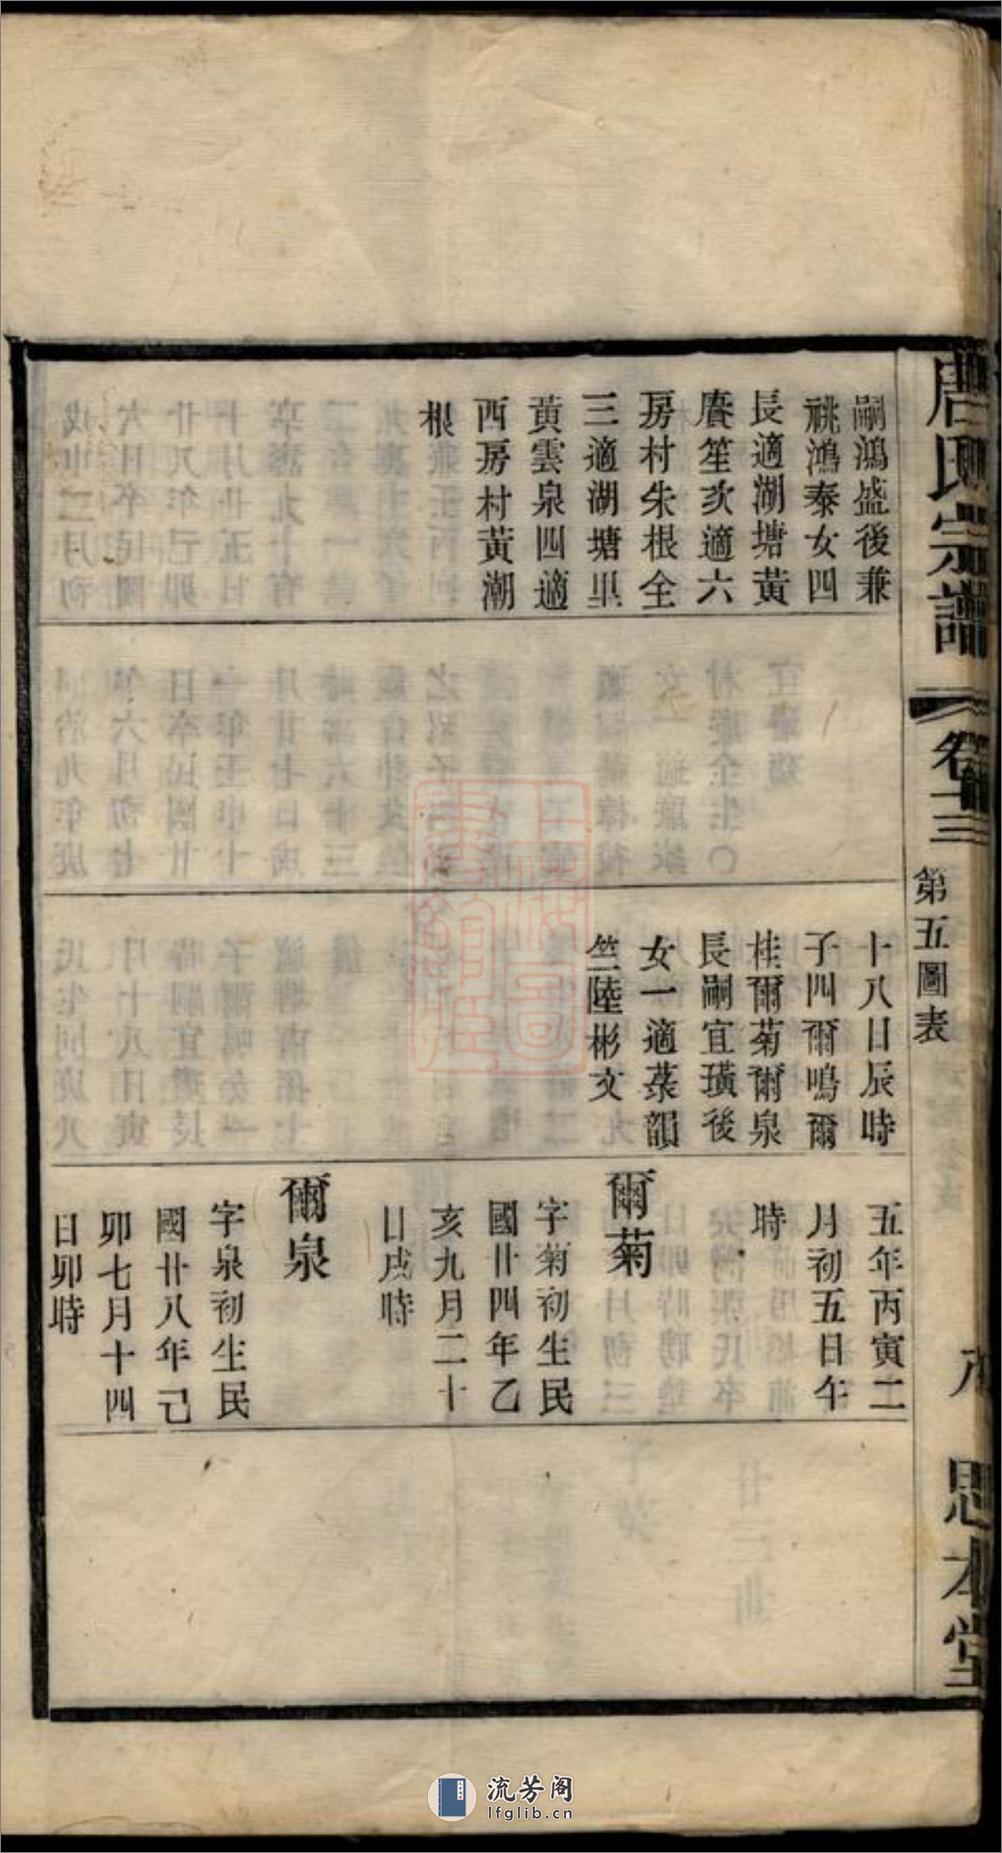 唐氏宗譜
卷十三
第五圖表
思本堂
嗣鴻盛後兼
祧鴻泰女四
長適湖塘黃
賡笙次適六
房村朱根全
三適湖塘里
黃雲泉四適
西房村黃潮
根
十八日辰時
子四爾鳴爾
桂爾菊爾泉
長嗣宜璜後
女一適蔡韻
竺陸彬文
五年丙寅二
月初五日午
時
爾菊
字菊初生民
國廿四年乙
亥九月二十
日戌時
爾泉
字泉初生民
國廿八年己
卯七月十四
日卯時
流芳阁
lfglib.cn